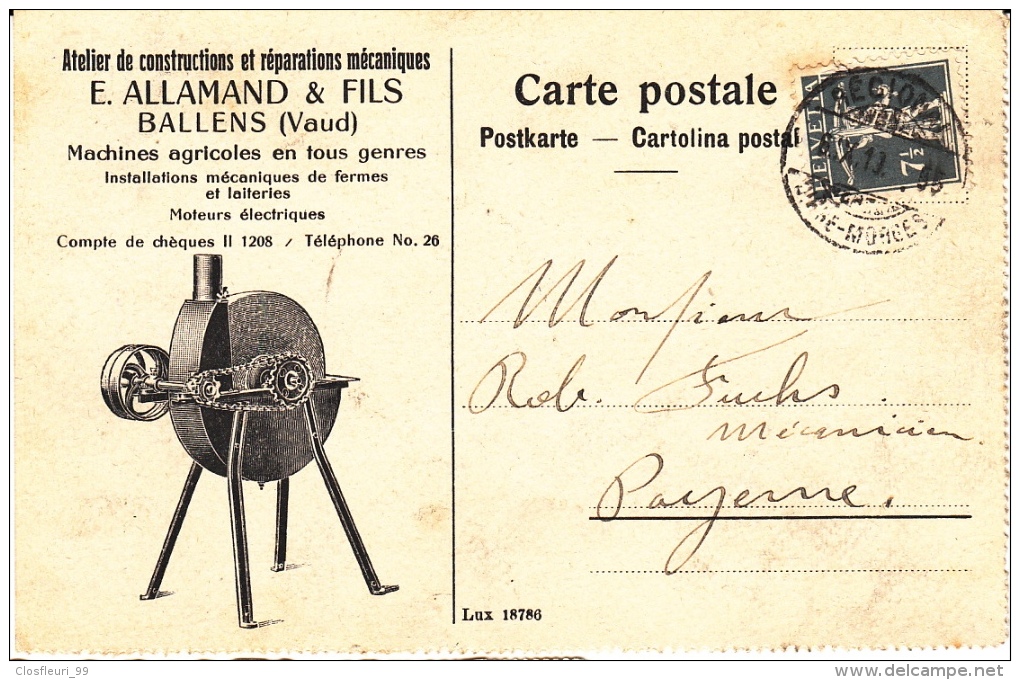 Atelier de constructions et réparations mécaniques
E. ALLAMAND & FILS
BALLENS (Vaud)
Machines agricoles en tous genres
Installations mécaniques de fermes
et laiteries
Moteurs électriques
Compte de chèques II 1208 / Téléphone No. 26
Carte postale
Postkarte — Cartolina postal
7½
MORGES
Monsieur
Rob. Fuchs.
Mécanicien
Payerne.
Lux 18786
Closfleuri_99
delcampe.net